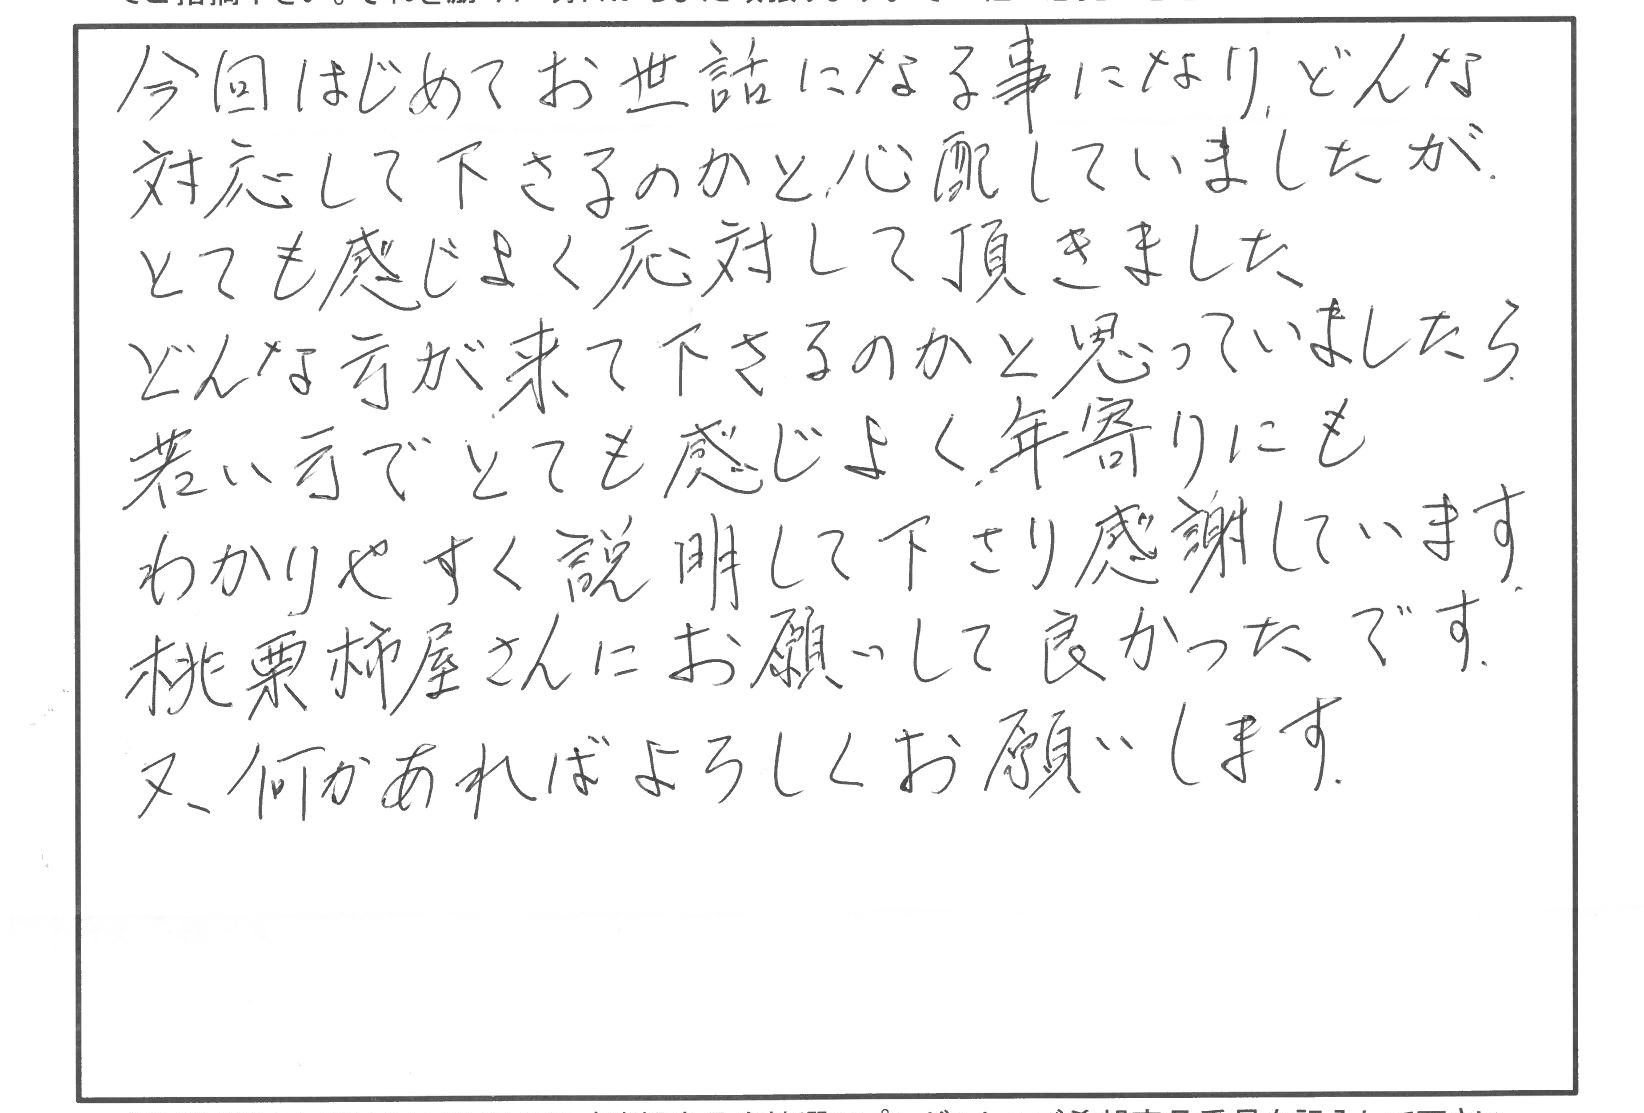 今回はじめてお世話になる事になり、どんな
対応して下さるのかと、心配していましたが、
とても感じよく応対して頂きました
どんな方が来て下さるのかと思っていましたら、
若い方でとても感じよく、年寄りにも
わかりやすく説明して下さり感謝しています。
桃栗柿屋さんにお願いして良かったです。
又、何かあればよろしくお願いします。